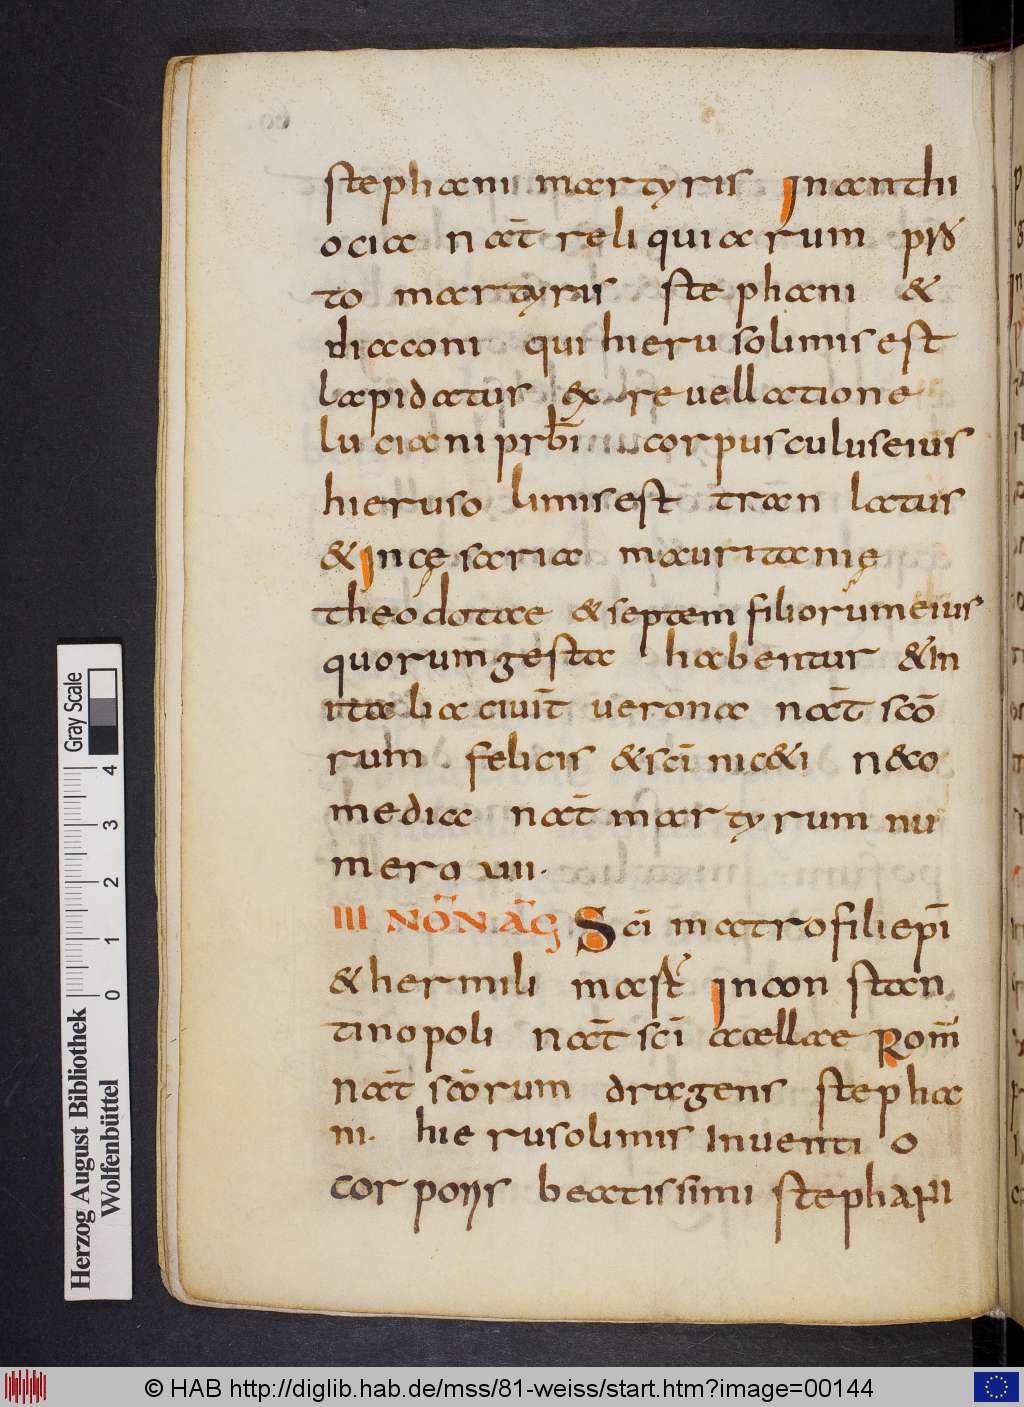 stephani martyris Inanthi
ocia nat̄ reliquiarum prō
to martyris stephani &
diaconi qui hierusolimis est
lapidatus ex reuellatione
luciani prb̄i corpusculus eius
hierusolimis est tran latus
& In cęsaria mauritanię
theodotae & septem filiorum eius
quorum gesta habentur & in
italia ciuit̄ uerona nat̄ scō
rum felicis & sc̄i nic&i n&co
media nat̄ martyrum nu
mero uiiii.
III NŌN AḠ Sc̄i matrofili ep̄i
& hermili mast̄ In con stan
tinopoli nat̄ sc̄i acellae Rom̄
nat̄ scōrum dragens stepha
ni. hierusolimis inuenti o
corporis beatissimi stephani
Herzog August Bibliothek
Wolfenbüttel
0 1 2 3 4
Gray Scale
© HAB http://diglib.hab.de/mss/81-weiss/start.htm?image=00144